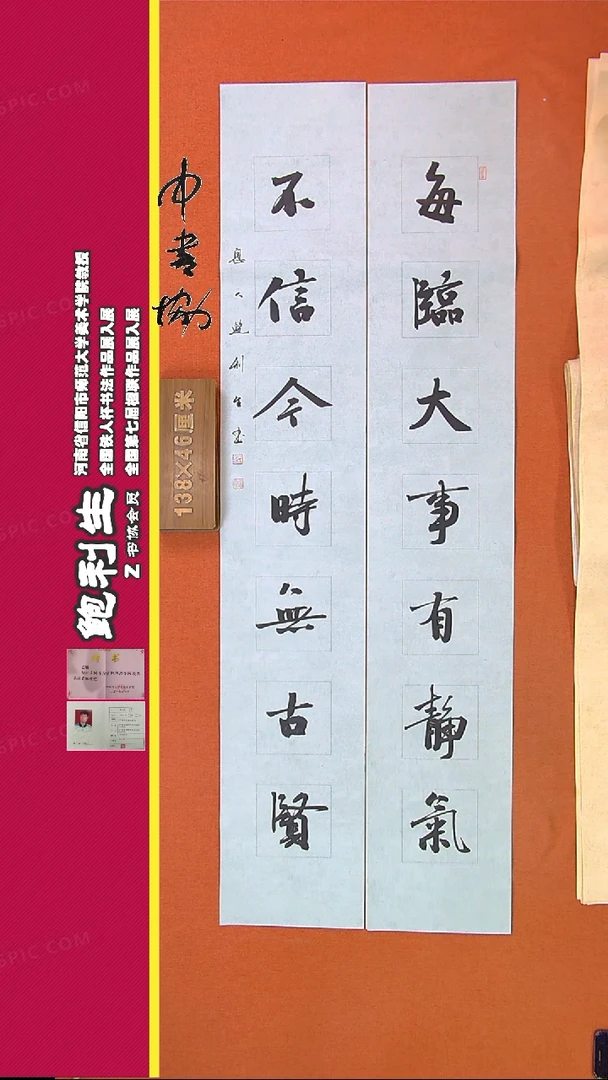 每臨大事有靜氣
不信今時無古賢
鮑利生書
中書協
138×46厘米
鲍利生
Z 书协会员
河南省信阳市师范大学美术学院教授
全国铁人杯书法作品展入展
全国第七届楹联作品展入展
SPIC.COM
SPIC.COM
SPIC.COM
SPIC.COM
SPIC.COM